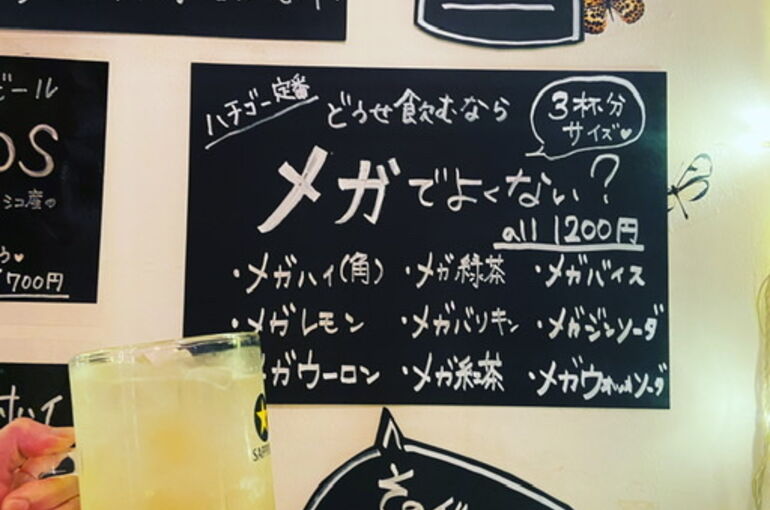 ビール
OS
シコ産の
700円
ハチゴー定番
どうせ飲むなら
3杯分
サイズ♥
メガでよくない?
all 1200円
・メガハイ(角) ・メガ緑茶 ・メガバイス
・メガレモン ・メガバリキン ・メガジンソーダ
ガウーロン ・メガ紅茶 ・メガウォッカソーダ
ハイ
SAPP